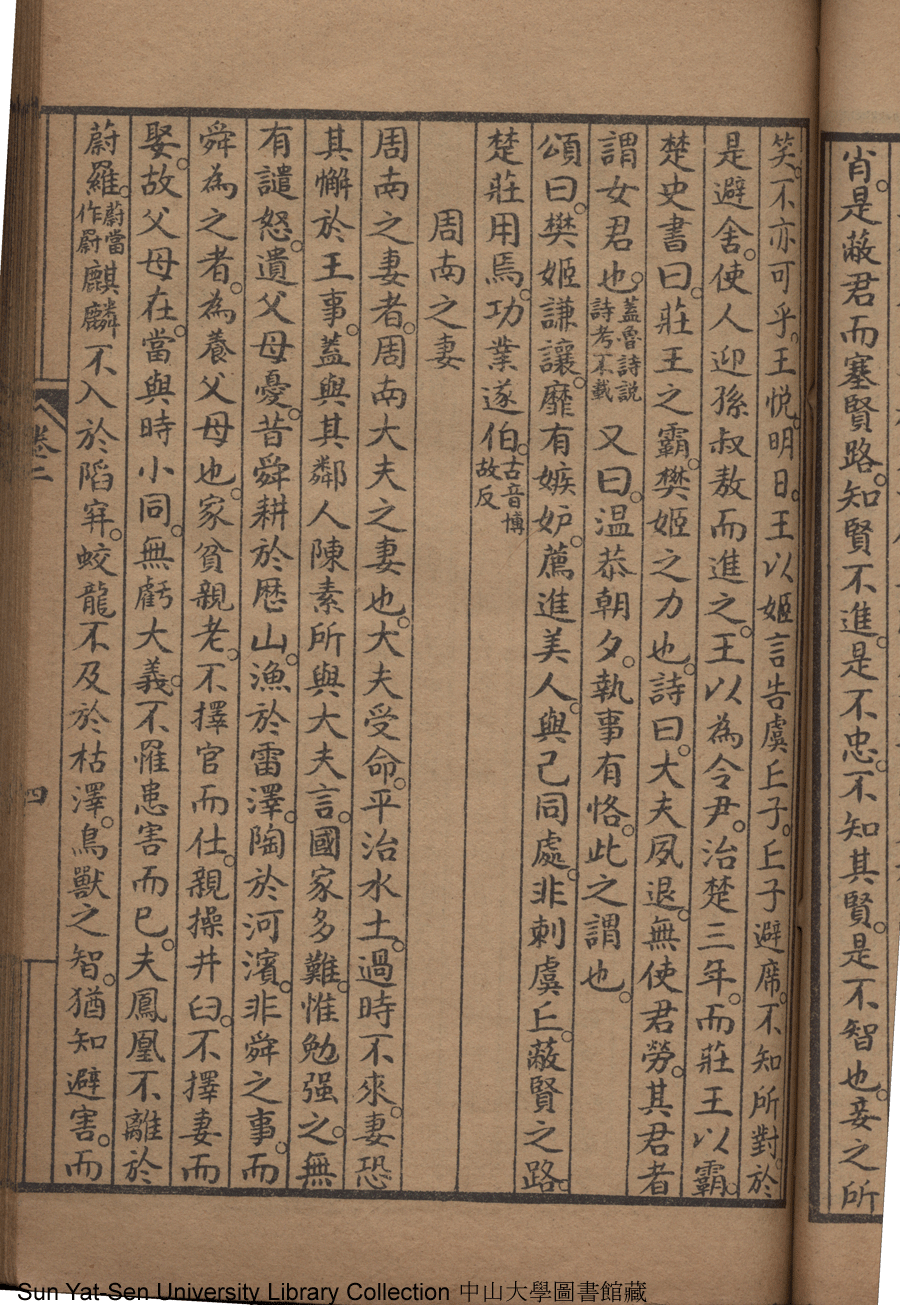 肖。是蔽君而塞賢路。知賢不進。是不忠。不知其賢。是不智也。妾之所
笑。不亦可乎。王悦。明日。王以姬言告虞丘子。丘子避席。不知所對。於
是避舍。使人迎孫叔敖而進之。王以為令尹。治楚三年。而莊王以霸。
楚史書曰。莊王之霸。樊姬之力也。詩曰。大夫夙退。無使君勞。其君者
謂女君也。蓋魯詩説詩考不載又曰。温恭朝夕。執事有恪。此之謂也。
頌曰。樊姬謙讓。靡有嫉妒。薦進美人。與己同處。非刺虞丘。蔽賢之路。
楚莊用焉。功業遂伯。古音博故反
周南之妻
周南之妻者。周南大夫之妻也。大夫受命。平治水土。過時不來。妻恐
其懈於王事。蓋與其鄰人陳素所與大夫言。國家多難。惟勉强之。無
有譴怒。遺父母憂。昔舜耕於歷山。漁於雷澤。陶於河濱。非舜之事。而
舜為之者。為養父母也。家貧親老。不擇官而仕。親操井臼。不擇妻而
娶。故父母在。當與時小同。無虧大義。不罹患害而已。夫鳳凰不離於
蔚羅。蔚當作罻麒麟不入於陷穽。蛟龍不及於枯澤。鳥獸之智。猶知避害。而
卷二
四
Sun Yat-Sen University Library Collection 中山大學圖書館藏